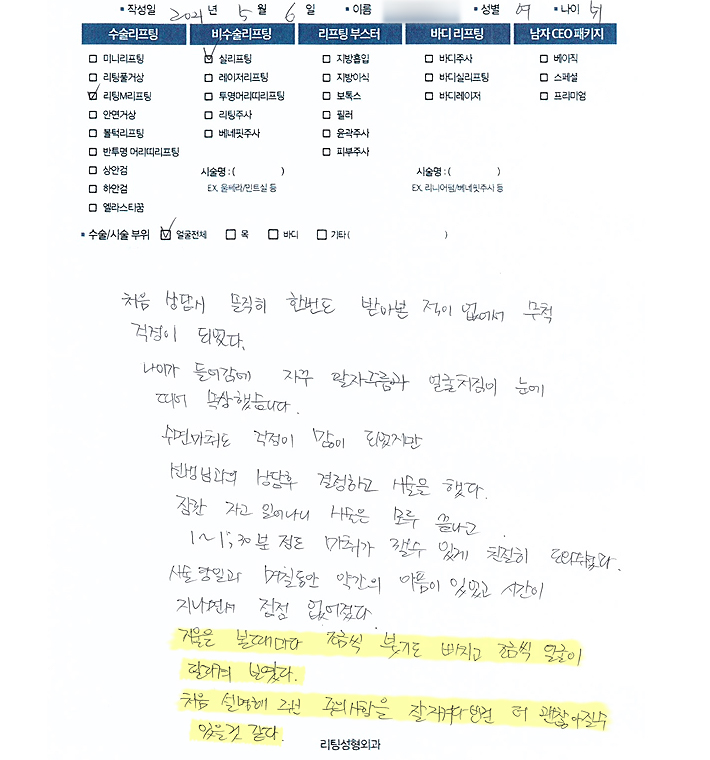 작성일 2021년 5월 6일 이름 성별 여 나이
수술리프팅 비수술리프팅 리프팅 부스터 바디 리프팅 남자 CEO 패키지
미니리프팅 실리프팅 지방흡입 바디주사 베이직
리팅풀거상 레이저리프팅 지방이식 바디실리프팅 스페셜
리팅M리프팅 투명머리띠리프팅 보톡스 바디레이저 프리미엄
안면거상 리팅주사 필러
볼턱리프팅 베네핏주사 윤곽주사
반투명 머리띠리프팅 피부주사
상안검 시술명 : ( ) 시술명 : ( )
하안검 EX. 울쎄라/민트실 등 EX. 리니어펌/베네핏주사 등
엘라스티꿈
수술/시술 부위 얼굴전체 목 바디 기타 ( )
처음 상담시 솔직히 한번도 받아본 적이 없어서 무척
걱정이 되었다.
나이가 들어감에 자꾸 팔자주름과 얼굴처짐이 눈에
띄어 속상했습니다.
수면마취도 걱정이 많이 되었지만
선생님과의 상담후 결정하고 시술을 했다.
잠깐 자고 일어나니 시술은 모두 끝나고
1~1시30분 정도 마취가 깰수 있게 친절히 도와줬다.
시술 당일과 며칠동안 약간의 아픔이 있었고 시간이
지나면서 점점 없어졌다.
거울을 볼때마다 조금씩 붓기도 빠지고 조금씩 얼굴이
달라져 보였다.
처음 설명해 주신 주의사항을 잘 지켜 더 괜찮아질수
있을것 같다.
리팅성형외과